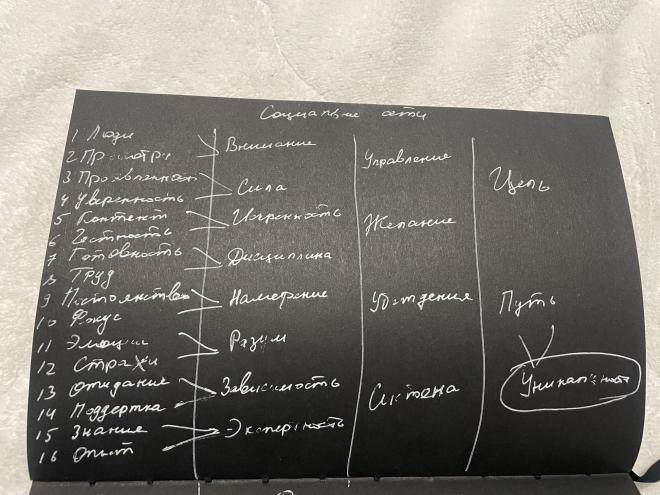 Социальные сети
1 Люди
2 Просмотры
3 Проявленность
4 Уверенность
5 Контент
6 Честность
7 Готовность
8 Труд
9 Постоянство
10 Фокус
11 Эмоции
12 Страхи
13 Ожидание
14 Поддержка
15 Знание
16 Опыт
Внимание
Сила
Искренность
Дисциплина
Намерение
Разум
Зависимость
Экспертность
Управление
Желание
Убеждение
Система
Цель
Путь
Уникальность